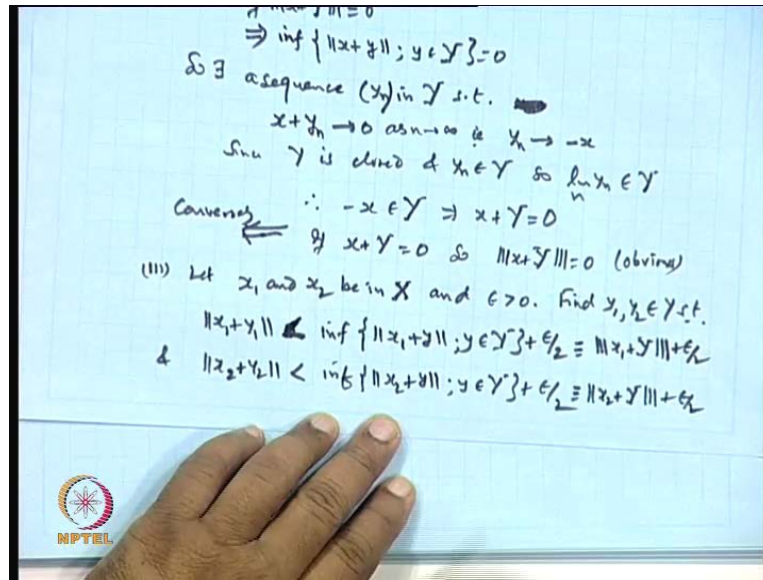 ||| = 0
⇒ inf {||x+y||; y ∈ Y} = 0
So ∃ a sequence (yn) in Y s.t.
x + yn → 0 as n → ∞ ie yn → -x
Sinu Y is closed & yn ∈ Y so lim yn ∈ Y
n
∴ -x ∈ Y ⇒ x + Y = 0
Conversly ⇐ If x + Y = 0 So |||x+Y||| = 0 (obvious)
(III) Let x1 and x2 be in X and ε > 0. Find y1, y2 ∈ Y s.t.
||x1+y1|| < inf {||x1+y||; y ∈ Y} + ε/2 ≡ |||x1+Y||| + ε/2
& ||x2+y2|| < inf {||x2+y||; y ∈ Y} + ε/2 ≡ |||x2+Y||| + ε/2
NPTEL